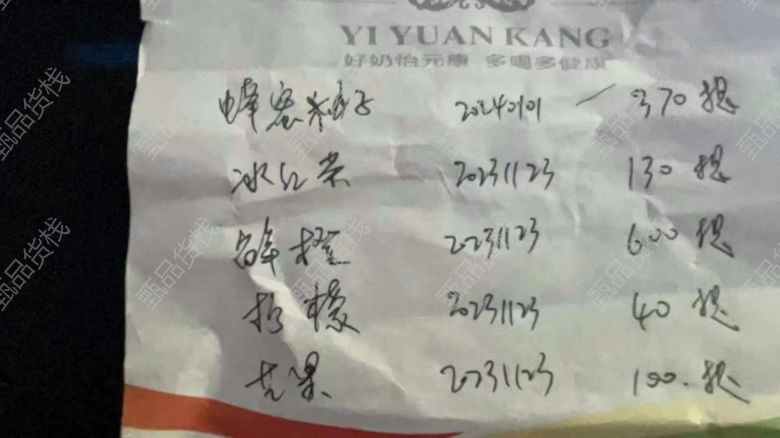 YI YUAN KANG
好奶怡元康 多喝多健康
蜂蜜柚子 20240101 370提
冰红茶 20231123 130提
鲜橙 20231123 600提
柠檬 20231123 40提
芒果 20231123 100.提
甄品货栈
甄品货栈
甄品货栈
甄品货栈
甄品货栈
甄品货栈